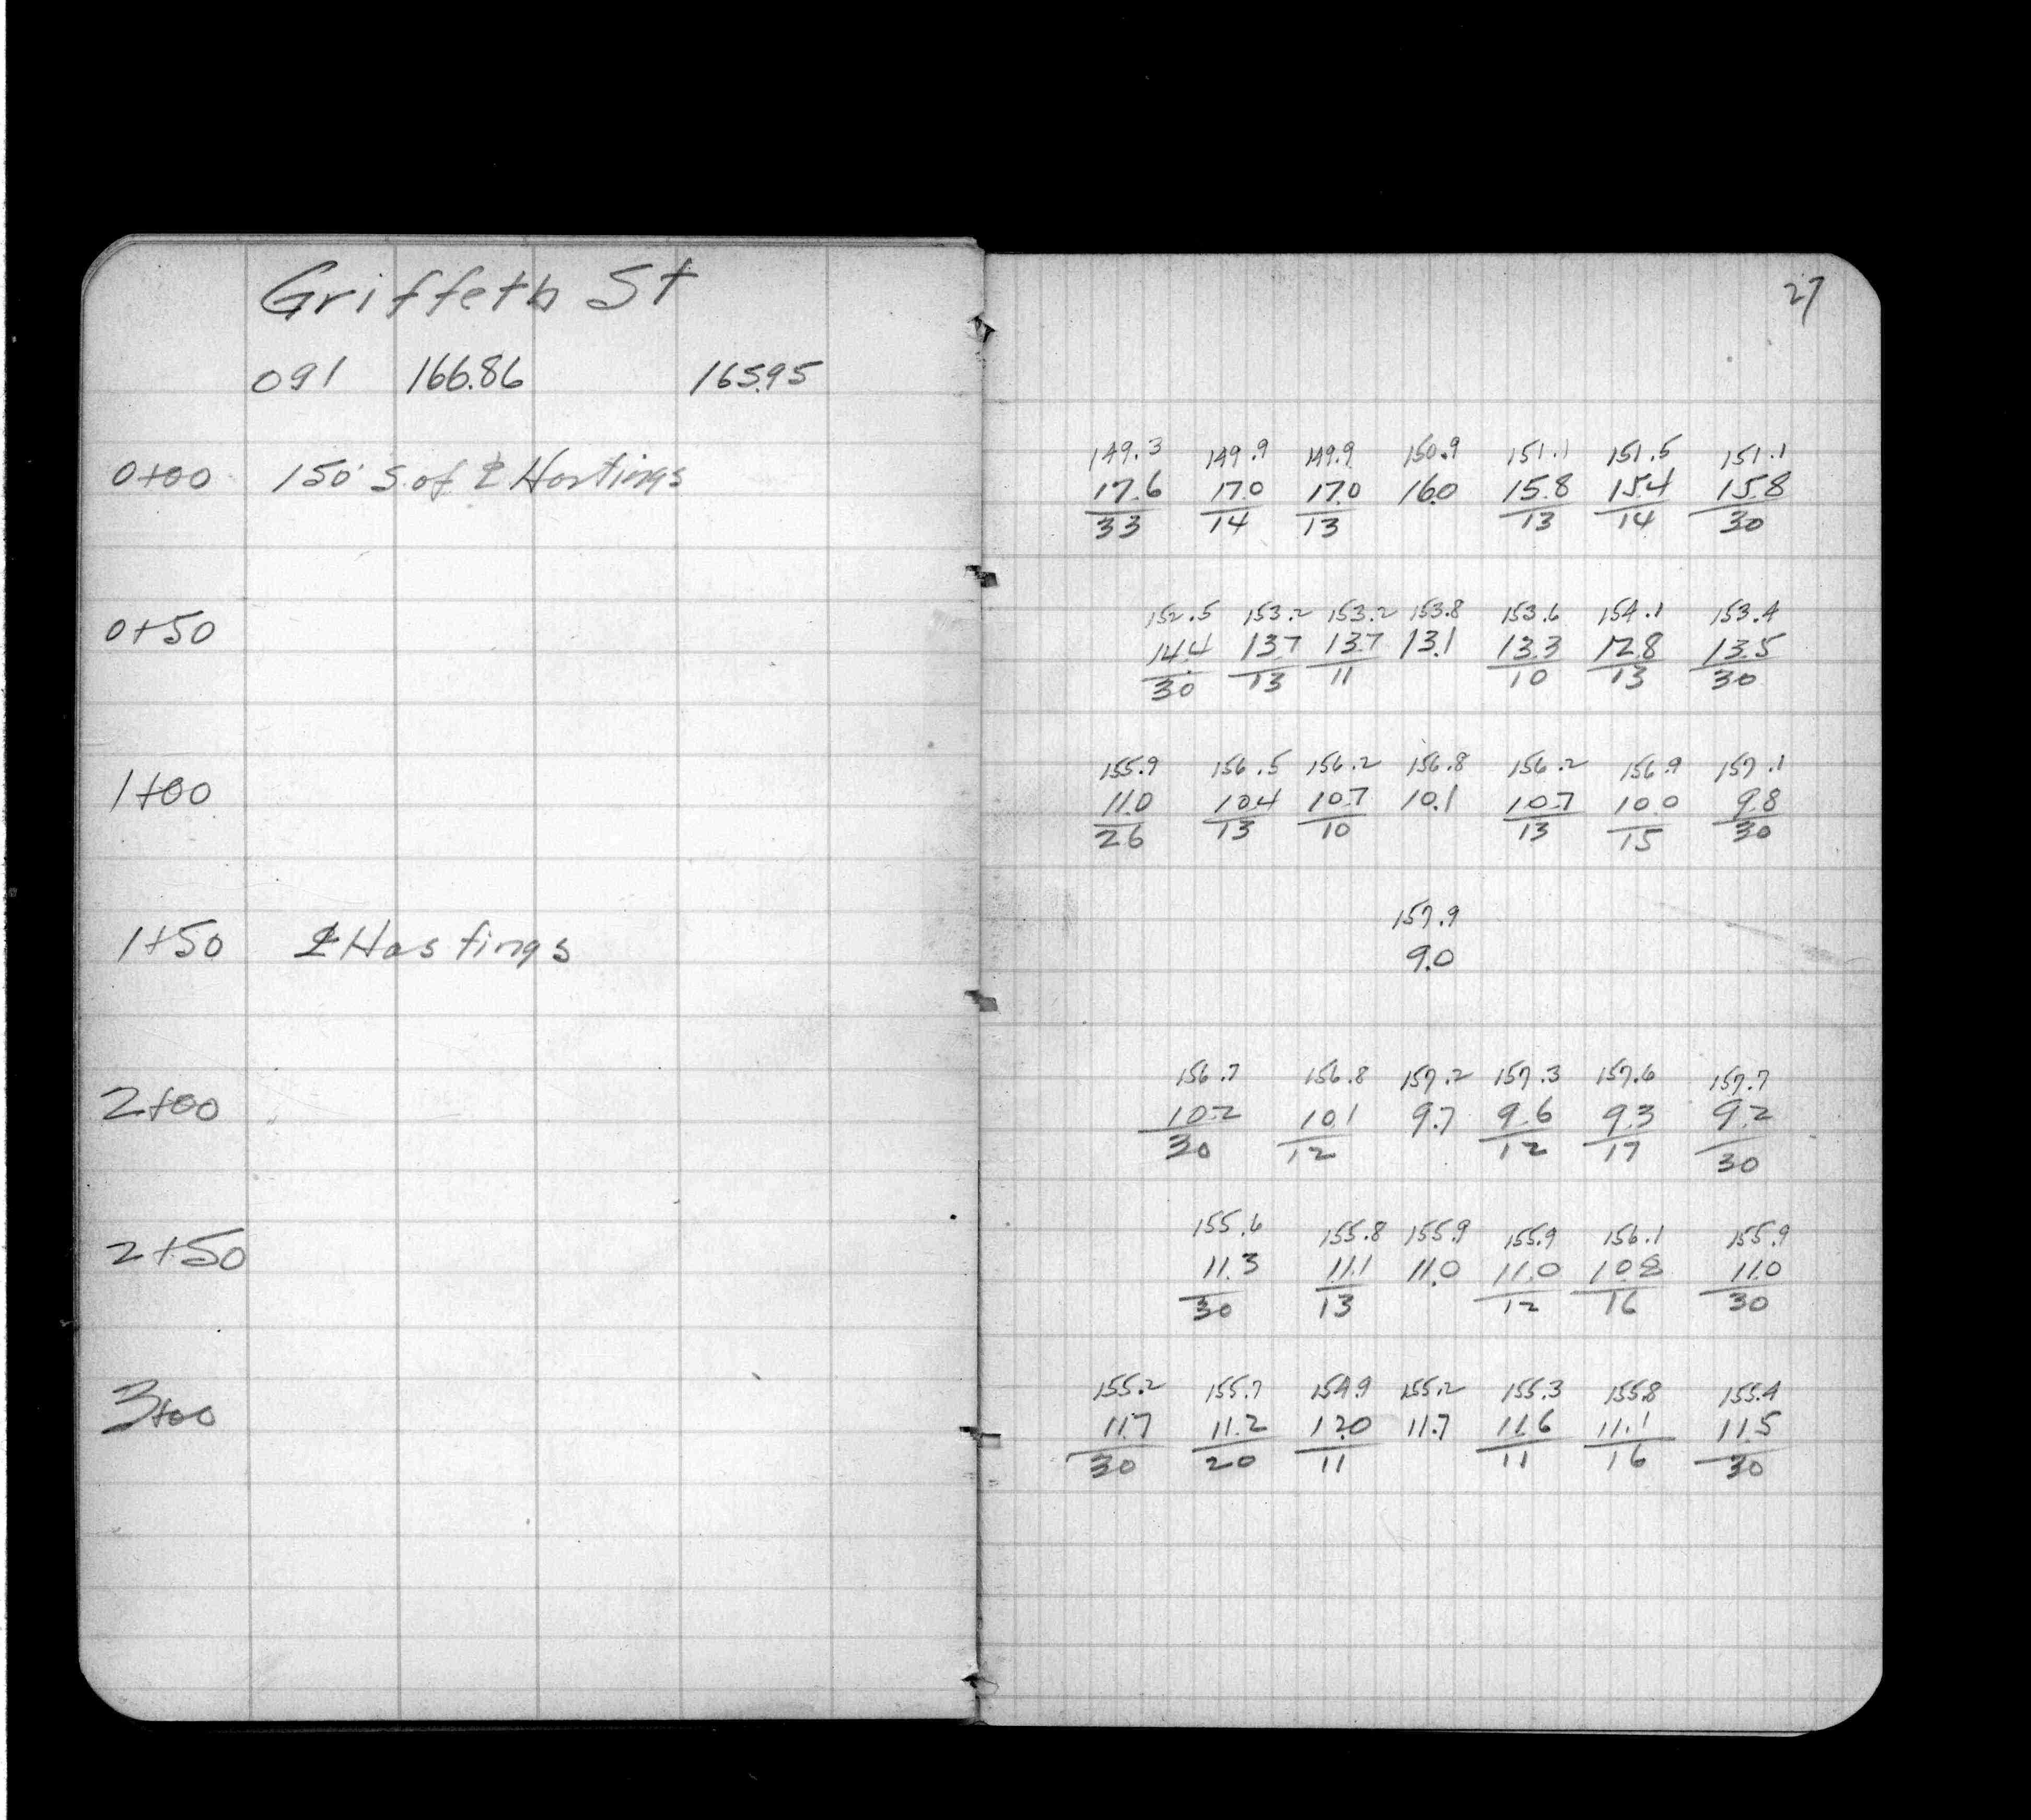 Griffeth St
27
091 166.86 165.95
149.3 149.9 149.9 150.9 151.1 151.5 151.1
0+00 150' S. of ℄ Hastings 17.6 17.0 17.0 16.0 15.8 15.4 15.8
33 14 13 13 14 30
152.5 153.2 153.2 153.8 153.6 154.1 153.4
0+50 14.4 13.7 13.7 13.1 13.3 12.8 13.5
30 13 11 10 13 30
155.9 156.5 156.2 156.8 156.2 156.9 157.1
1+00 11.0 10.4 10.7 10.1 10.7 10.0 9.8
26 13 10 13 15 30
157.9
1+50 ℄ Hastings 9.0
156.7 156.8 157.2 157.3 157.6 157.7
2+00 10.2 10.1 9.7 9.6 9.3 9.2
30 12 12 17 30
155.6 155.8 155.9 155.9 156.1 155.9
2+50 11.3 11.1 11.0 11.0 10.8 11.0
30 13 12 16 30
155.2 155.7 154.9 155.2 155.3 155.8 155.4
3+00 11.7 11.2 12.0 11.7 11.6 11.1 11.5
30 20 11 11 16 30